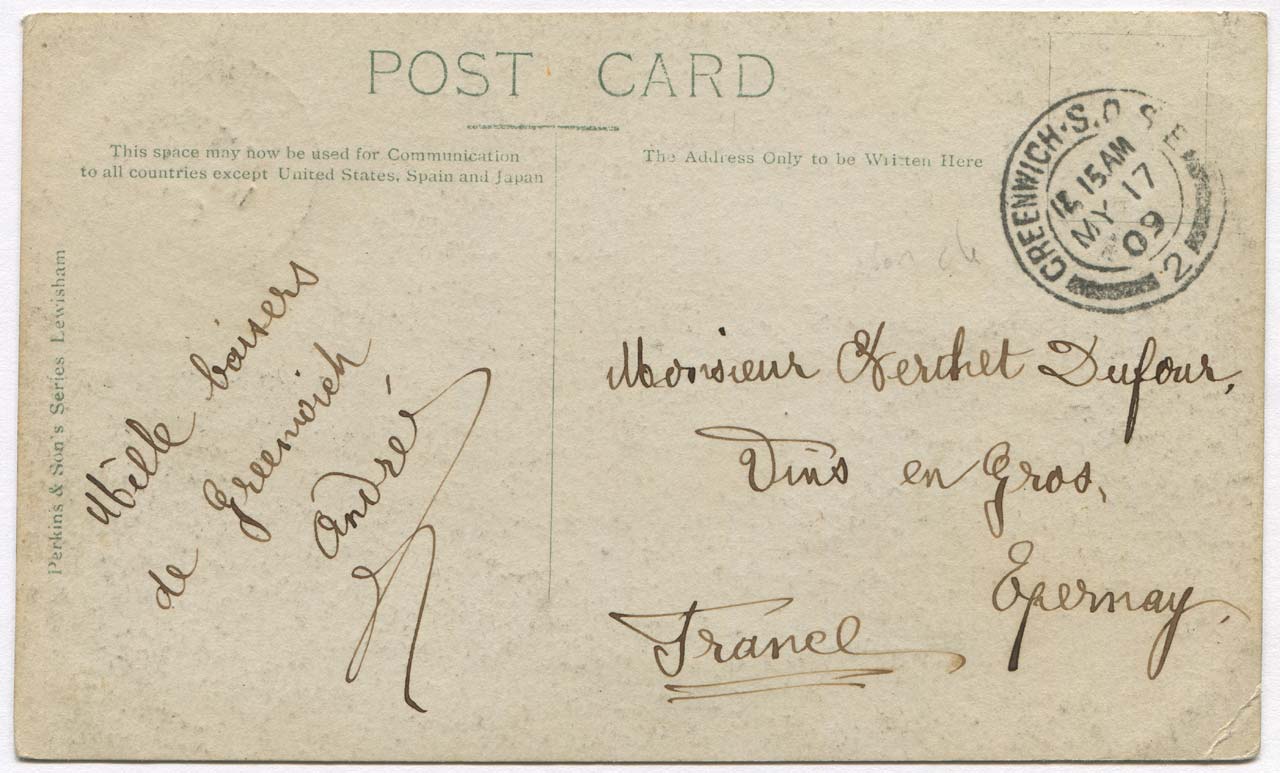 POST CARD
This space may now be used for Communication
to all countries except United States, Spain and Japan
The Address Only to be Written Here
GREENWICH·S.O. S.E.
12 15AM
MY 17
09
2
Perkins & Son's Series Lewisham
Mille baisers
de Greenwich
André
Monsieur Herchet Dufour,
Vins en Gros,
Epernay,
France